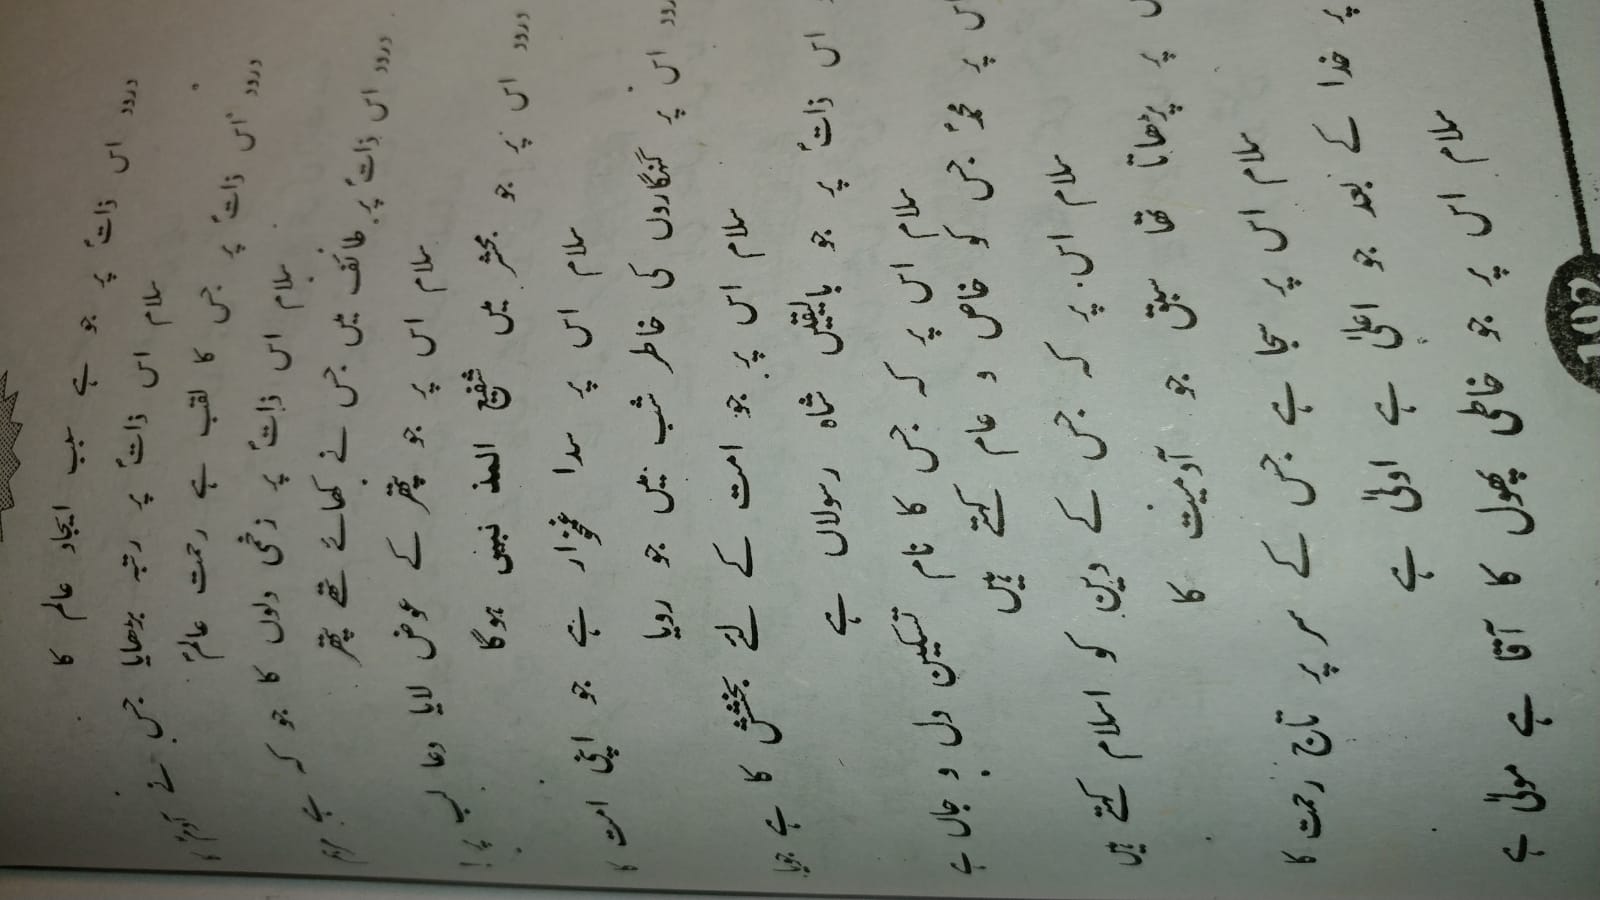 درود اس ذاتؐ پر جو ہے سبب ایجاد عالم کا
سلام اس ذاتؐ پر رتبہ بڑھایا جس نے آدمؑ کا
درود اس ذاتؐ پر جس کا لقب ہے رحمت عالمؐ
سلام اس ذاتؐ پر زخمی دلوں کا جو کہ ہے مرہم
درود اس ذاتؐ پر طائف میں جس نے کھائے تھے پتھر
سلام اس پر جو پتھر کے عوض لایا دعا لب پر!
درود اس پر جو محشر میں شفیع المذنبیں ہوگا
سلام اس پر سدا غمخوار ہے جو اپنی امت کا
درود اس پر گنہگاروں کی خاطر شب میں جو رویا
سلام اس پر جو امت کے لئے بخشش کا ہے جویا
اس ذاتؐ پر جو بالیقیں شاہ رسولاں ہے
سلام اس پر کہ جس کا نام تسکین دل و جاں ہے
اس پر محمدؐ جس کو خاص و عام کہتے ہیں
سلام اس پر کہ جس کے دین کو اسلام کہتے ہیں
اس پر پڑھاتا تھا سبق جو آدمیت کا
سلام اس پر سجا ہے جس کے سر پر تاج رحمت کا
پر خدا کے بعد جو اعلیٰ ہے اولیٰ ہے
سلام اس پر جو خاطی پھول کا آقا ہے مولیٰ ہے
102